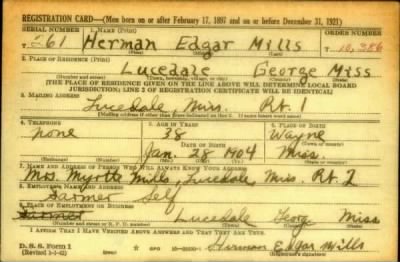 REGISTRATION CARD—(Men born on or after February 17, 1897 and on or before December 31, 1921)
SERIAL NUMBER 1. NAME (Print) ORDER NUMBER
T 261 Herman Edgar Mills T 10,386
(First) (Middle) (Last)
2. PLACE OF RESIDENCE (Print)
Lucedale George Miss
(Number and street) (Town, township, village, or city) (County) (State)
[THE PLACE OF RESIDENCE GIVEN ON THE LINE ABOVE WILL DETERMINE LOCAL BOARD
JURISDICTION; LINE 2 OF REGISTRATION CERTIFICATE WILL BE IDENTICAL]
3. MAILING ADDRESS
Lucedale, Miss. Rt. 1
[Mailing address if other than place indicated on line 2. If same insert word same]
4. TELEPHONE 5. AGE IN YEARS 6. PLACE OF BIRTH
None 38 Wayne
DATE OF BIRTH (Town or county)
Jan. 28 1904 Miss.
(Exchange) (Number) (Mo.) (Day) (Yr.) (State or country)
7. NAME AND ADDRESS OF PERSON WHO WILL ALWAYS KNOW YOUR ADDRESS
Mrs. Myrtle Mills, Lucedale, Miss. Rt. 1
8. EMPLOYER'S NAME AND ADDRESS
Farmer Self
9. PLACE OF EMPLOYMENT OR BUSINESS
Farmer Lucedale George Miss
(Number and street or R. F. D. number) (Town) (County) (State)
I AFFIRM THAT I HAVE VERIFIED ABOVE ANSWERS AND THAT THEY ARE TRUE.
D. S. S. Form 1 GPO Herman Edgar Mills
(Revised 1-1-42)